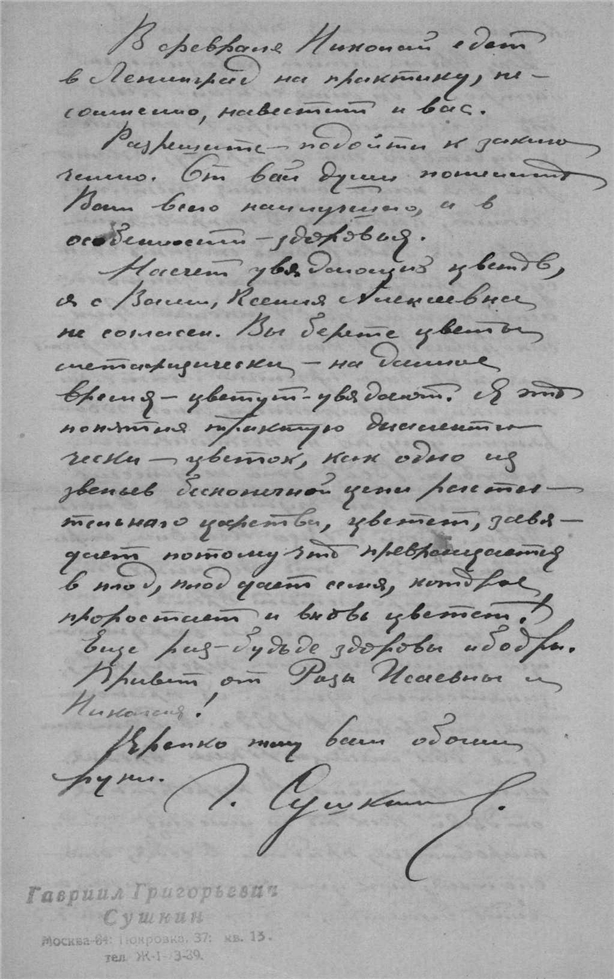 В феврале Николай едет
в Ленинград на практику, не-
сомненно, навестит и вас.
Разрешите – подойти к заклю
чению. От всей души пожелать
Вам всего наилучшего, а в
особенности – здоровья.
Насчет увядающих цветов,
я с Вами, Ксения Алексеевна
не согласен. Вы берете цветы
метафизически – на данное
время – цветут – увядают. Я это
понятия трактую диалекти
чески – цветок, как одно из
звеньев бесконечной цепи расти-
тельнаго царства, цветет, завя-
дает потому что превращается
в плод, плод дает семя, которое
проростает и вновь цветет!
Еще раз – будьте здоровы и бодры.
Привет от Розы Исаевны и
Николая!
Крепко жму вам обоим
руки.
Г. Сушкин
Гавриил Григорьевич
Сушкин
Москва-84: Покровка, 37: кв. 15.
тел. Ж-1- 3-89.